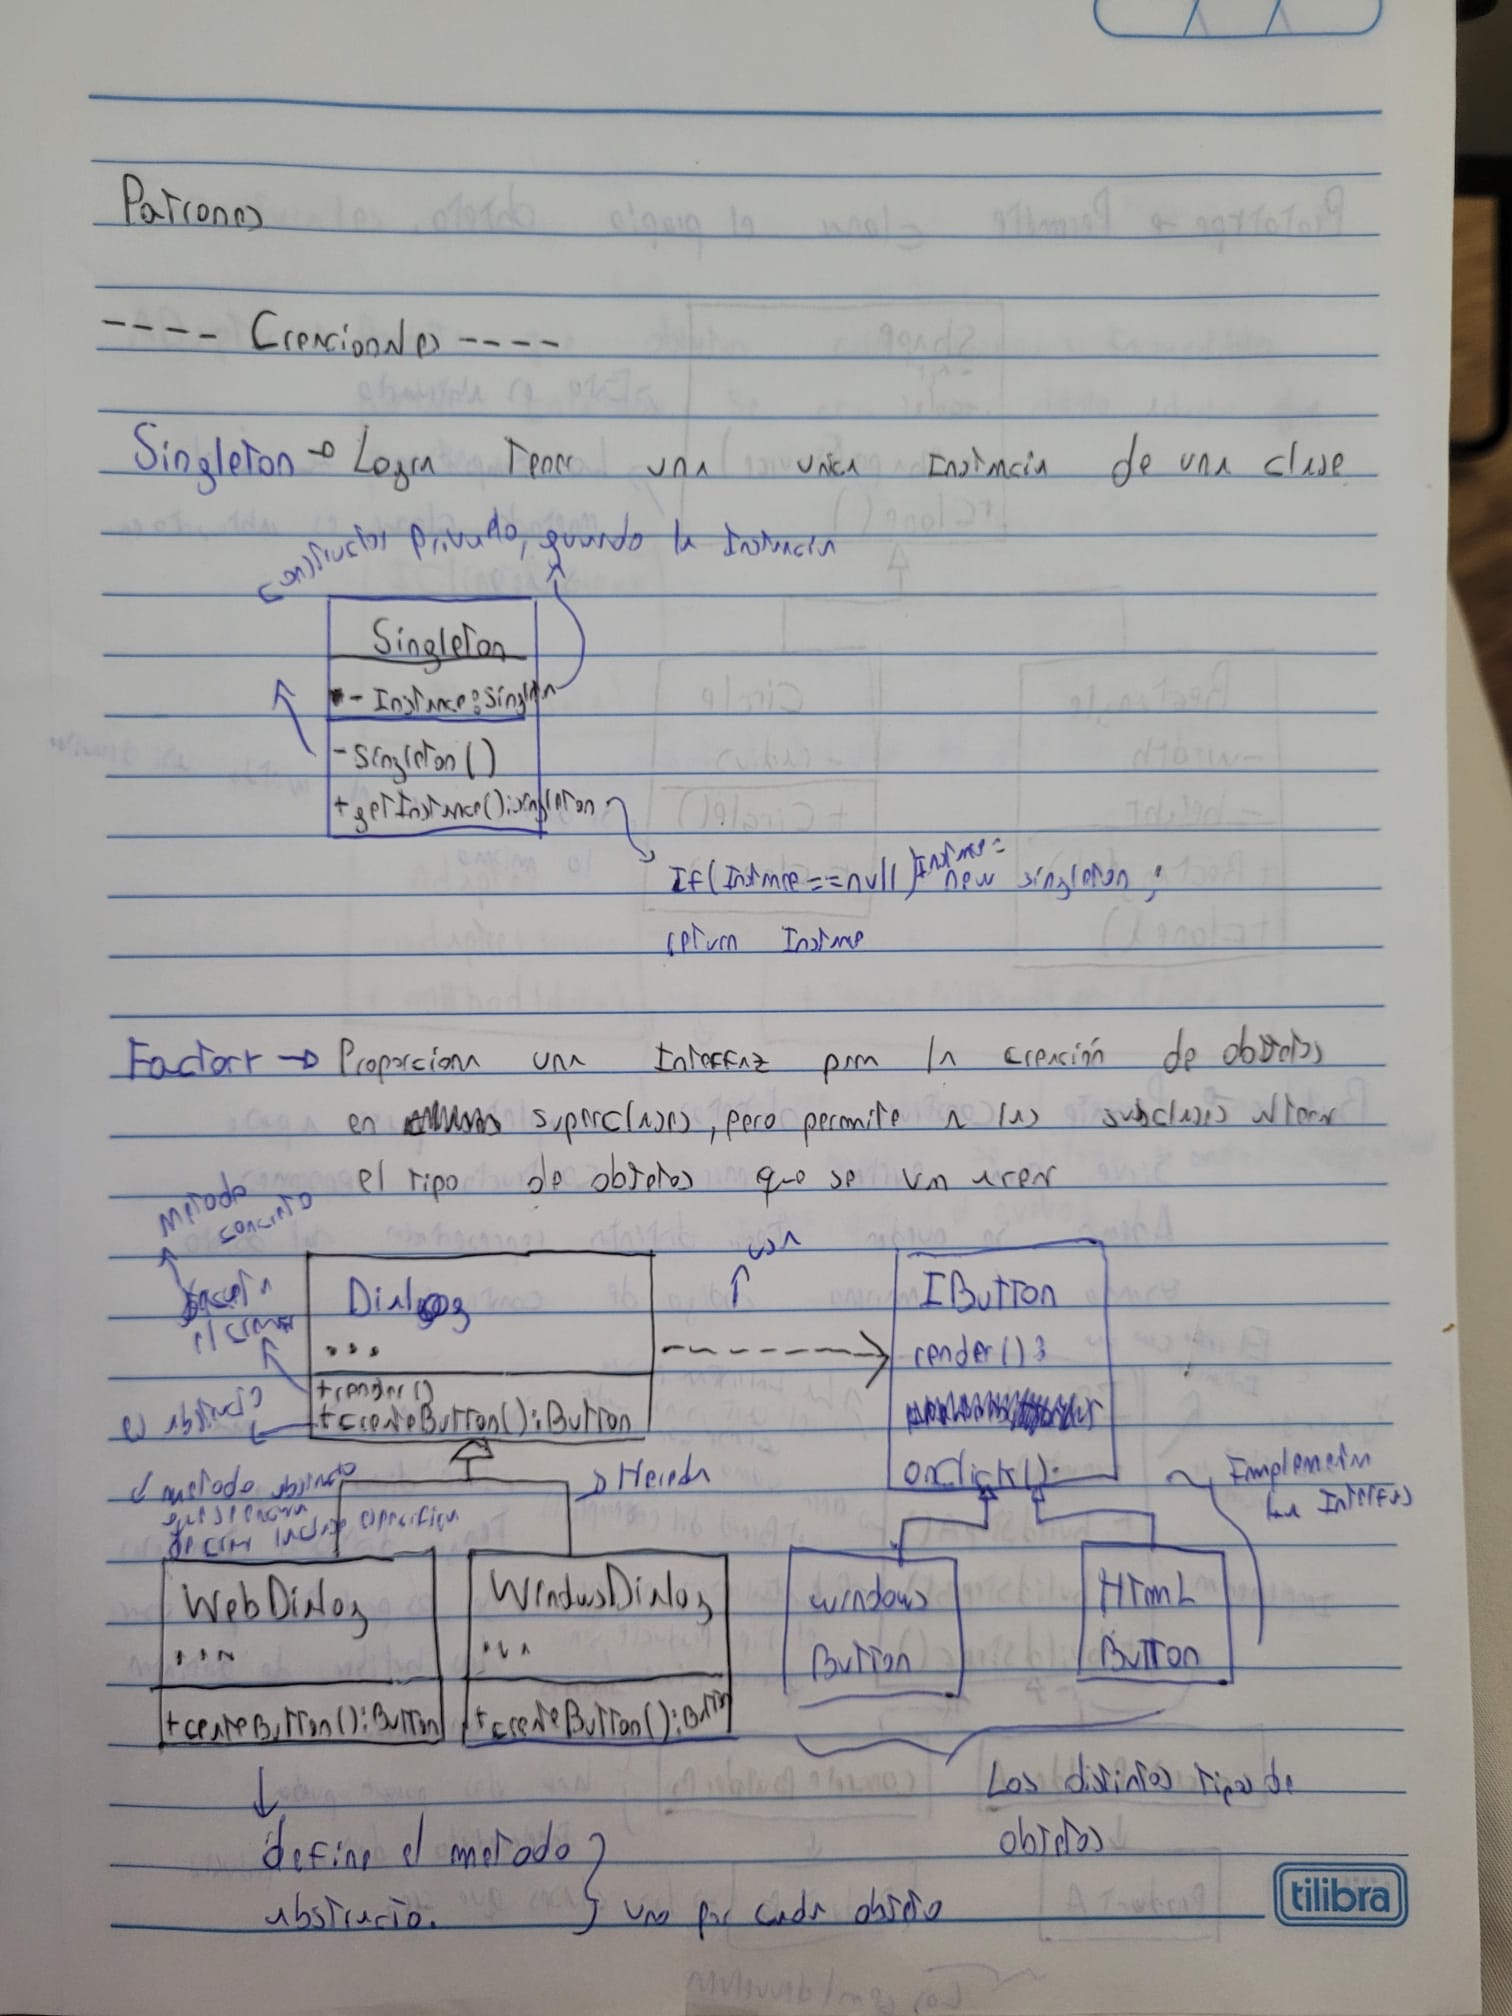 Patrones
---- Creacionales ----
Singleton → Logra tener una unica Instancia de una clase
constructor privado, guardo la Instancia
Singleton
- Instance: Singleton
- Singleton()
+ getInstance(): singleton
If(Instance == null) Instance =
new singleton;
return Instance
Factory → Proporciona una Interfaz para la creación de objetos
en superclases, pero permite a las subclases alterar
el tipo de objetos que se van a crear
Metodo
concreto
usa
Ejecuta
el crear
Dialog
...
+ render()
+ createButton(): Button
IButton
render();
onClick();
es abstracto
el metodo abstracto
Hereda
Implementan
La Interfas
WebDialog
...
+ createButton(): Button
WindowsDialog
...
+ createButton(): Button
windows
Button
HTML
Button
Los distintos tipos de
objetos
define el metodo
abstracto.
uno por cada objeto
tilibra